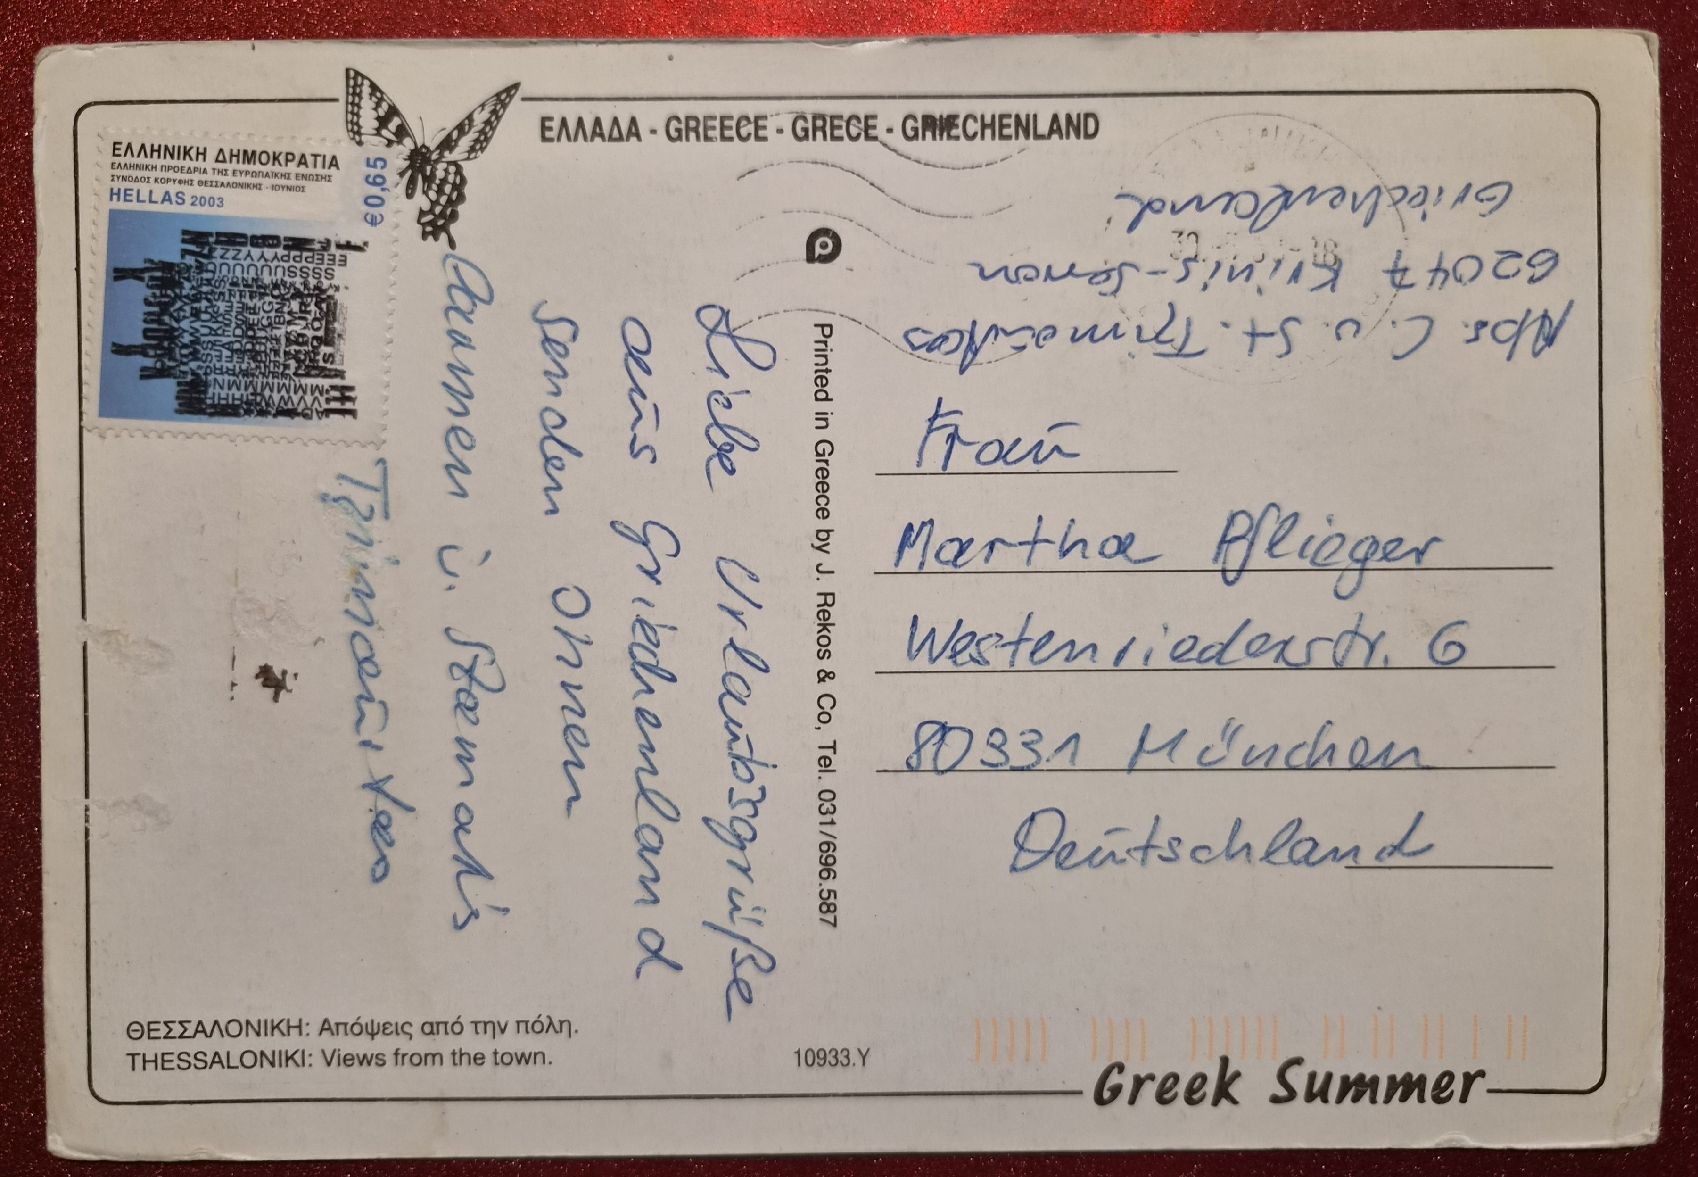 ΕΛΛΑΔΑ - GREECE - GRECE - GRIECHENLAND
ΕΛΛΗΝΙΚΗ ΔΗΜΟΚΡΑΤΙΑ
ΕΛΛΗΝΙΚΗ ΠΡΟΕΔΡΙΑ ΤΗΣ ΕΥΡΩΠΑΪΚΗΣ ΕΝΩΣΗΣ
ΣΥΝΟΔΟΣ ΚΟΡΥΦΗΣ ΘΕΣΣΑΛΟΝΙΚΗΣ - ΙΟΥΝΙΟΣ
HELLAS 2003
€0,65
Liebe Urlaubsgrüße
aus Griechenland
senden Ihnen
Carmen u. Stamatis
Printed in Greece by J. Rekos & Co, Tel. 031/696.587
Abs. C. u. St.
62047
Griechenland
Frau
Martha Pflieger
Westenriederstr. 6
80331 München
Deutschland
ΘΕΣΣΑΛΟΝΙΚΗ: Απόψεις από την πόλη.
THESSALONIKI: Views from the town.
10933.Y
Greek Summer